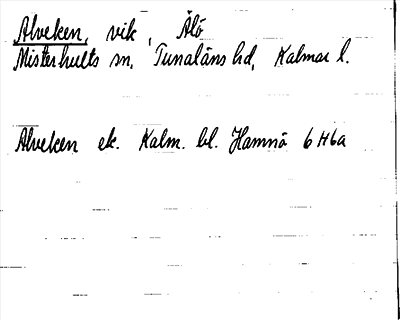 Alveken, vik, Älö
Misterhults sn, Tunaläns hd, Kalmar l.
Alveken ek. Kalm. bl. Hamnö 6 H 6a